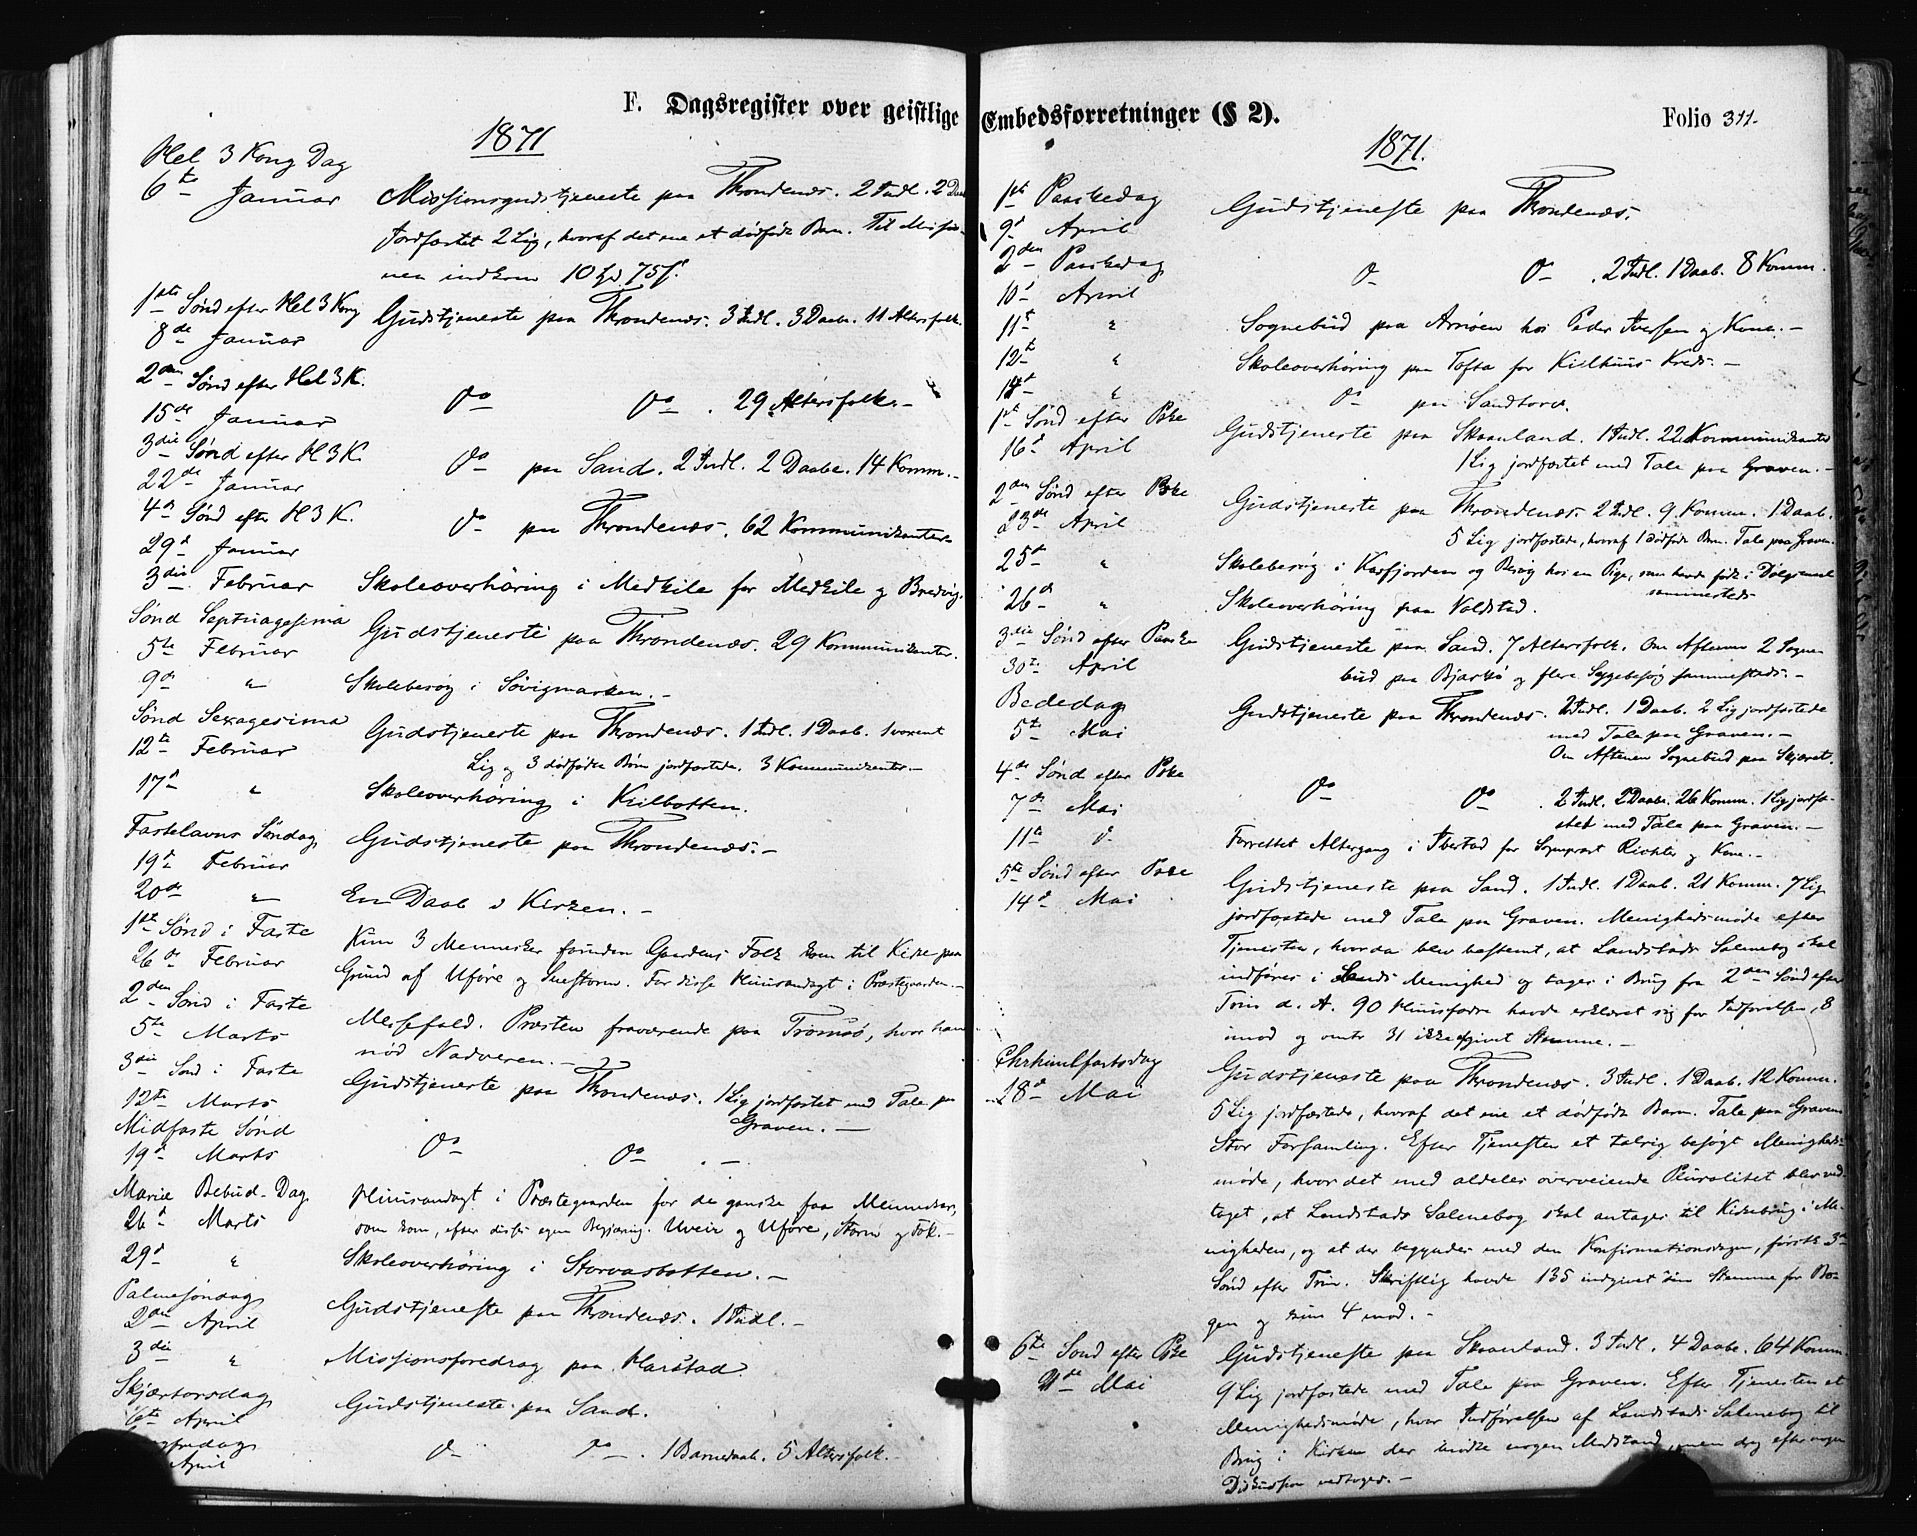 F. Dagsregister over geistlige
1871
Hel 3 Kong Dag
6te Januar Missionsgudstjeneste paa Throndenæs. 2 Indl. 2 Daab
Jordfæstet 2 Lig, hvoraf det ene et dødfødt Barn. Til Missio-
nen indkom
1ste Sønd efter Hel 3 Kong Gudstjeneste paa Throndenæs. 3 Indl. 3 Daab. 11 Altersfolk.
8de Januar
2den Sønd efter Hel 3 K. Do Do . 29 Altersfolk.-
15de Januar
3die Sønd efter H 3 K. Do paa Sand. 2 Indl. 2 Daabe. 14 Komm.-
22de Januar
4de Sønd efter H 3 K. Do paa Throndenæs. 62 Kommunikanter-
29de Januar
3die Februar Skoleoverhöring i Medkile for Medkile og Bredvig.
Sønd Septuagesima Gudstjeneste paa Throndenæs. 29 Kommunikanter.
5te Februar
9de " Skolebesøg i Sövigmarken.-
Sønd Sexagesima Gudstjeneste paa Throndenæs. 1 Indl. 1 Daab. 1 voxent
12te Februar Lig og 3 dödfödte Børn jordfæstede. 3 Kommunikanter.-
17de " Skoleoverhöring i Kilbotten.
Fastelavns Søndag Gudstjeneste paa Throndenæs.-
19de Februar
20de " En Daab i Kirken.-
1ste Sønd i Faste Kun 3 Mennesker foruden Gaardens Folk kom til Kirke paa
26de Februar Grund af Uföre og Snestorm. For disse Huusandagt i Præstegaarden.-
2den Sønd i Faste Messefald. Præsten fraværende paa Tromsö, hvor han
5te Marts nöd Nadveren.-
3die Sønd i Faste Gudstjeneste paa Throndenæs. 1 Lig jordfæstet med Tale paa
12te Marts Graven.-
Midfaste Sønd Do Do .-
19de Marts
Mariæ Bebud. Dag Huusandagt i Præstegaarden for de ganske faa Mennesker,
26de Marts som kom, efter disses egen Begjæring. Uveir og Uföre, Storm og Fok.-
29de " Skoleoverhöring i Storvasbotten.-
Palmesöndag Gudstjeneste paa Throndenæs. 1 Indl.-
2den April
3die " Missionsforedrag paa Harstad.
Skjærtorsdag Gudstjeneste paa Sand.
6te April
Do Do . 1 Barnedaab. 5 Altersfolk.-
April
Embedsforretninger (§ 2).
Folio 311.
1871.
1ste Paaskedag Gudstjeneste paa Throndenæs.
9de April
2den Paaskedag Do Do . 2 Indl. 1 Daab. 8 Komm.
10de April
11te " Sognebud paa Arnöen hos Peder Iversen og Kone.-
12te " Skoleoverhöring paa Tofta for Kilhuus Kreds.-
14de " Do paa Sandtorv.
1ste Sønd efter Pske Gudstjeneste paa Skaanland. 1 Indl. 22 Kommunikanter
16de April 1 Lig jordfæstet med Tale paa Graven.-
2den Sønd efter Pske Gudstjeneste paa Throndenæs. 2 Indl. 9 Komm. 1 Daab.
23de April 5 Lig jordfæstede, hvoraf 1 dødfødt Barn. Tale paa Graven.
25de " Skolebesøg i Kasfjorden og Besøg hos en Pige, som havde födt i Dølgsmaal
sammesteds
26de " Skoleoverhöring paa Voldstad.
3die Sønd efter Paaske Gudstjeneste paa Sand. 7 Altersfolk. Om Aftenen 2 Sogne-
30te April bud paa Bjarkö og flere Sygebesøg sammesteds.-
Bededag Gudstjeneste paa Throndenæs. 2 Indl. 1 Daab. 2 Lig jordfæstede
5te Mai med Tale paa Graven.-
Om Aftenen Sognebud paa Skjæret.
4de Sønd efter Pske Do Do . 2 Indl. 2 Daabe. 26 Komm. 1 Lig jordfæ-
7de Mai stet med Tale paa Graven.-
11te Do Forrettet Altergang i Ibestad for Sognepræst Richter og Kone.-
5te Sønd efter Pske Gudstjeneste paa Sand. 1 Indl. 1 Daab. 21 Komm. 7 Lig
14de Mai jordfæstede med Tale paa Graven. Menighedsmöde efter
Tjenesten, hvorda blev bestemt, at Landstads Salmebog skal
indföres i Sands Menighed og tages i Brug fra 2den Sønd efter
Trin d. A. 90 Huusfædre havde erklæret sig for Indförelsen, 8
imod og omtr 31 ikke afgivet Stemme.-
Chr himlfartsdag Gudstjeneste paa Throndenæs. 3 Indl. 1 Daab. 12 Komm.
18de Mai 5 Lig jordfæstede, hvoraf det ene et dödfödt Barn. Tale paa Graven
Stor Forsamling. Efter Tjenesten et talrig besögt Menigheds-
möde, hvor det med aldeles overveiende Pluralitet blev ved-
taget, at Landstads Salmebog skal antages til Kirkebrug i Me-
nigheden, og at der begyndes med den Konfirmationsdagen, förstk 3die
Sønd efter Trin. Skriftlig havde 135 indgivet sin Stemme for Bo-
gen og kun 4 mod.-
6te Sønd efter Pske Gudstjeneste paa Skaanland. 3 Indl. 4 Daabe. 64 Komm.
21de Mai 9 Lig jordfæstede med Tale paa Graven. Efter Tjenesten et
Menighedsmöde, hvor Indförelsen af Landstads Salmebog til
Brug i Kirken der mödte nogen Modstand, men dog efter nogen
Diskussion vedtoges.-